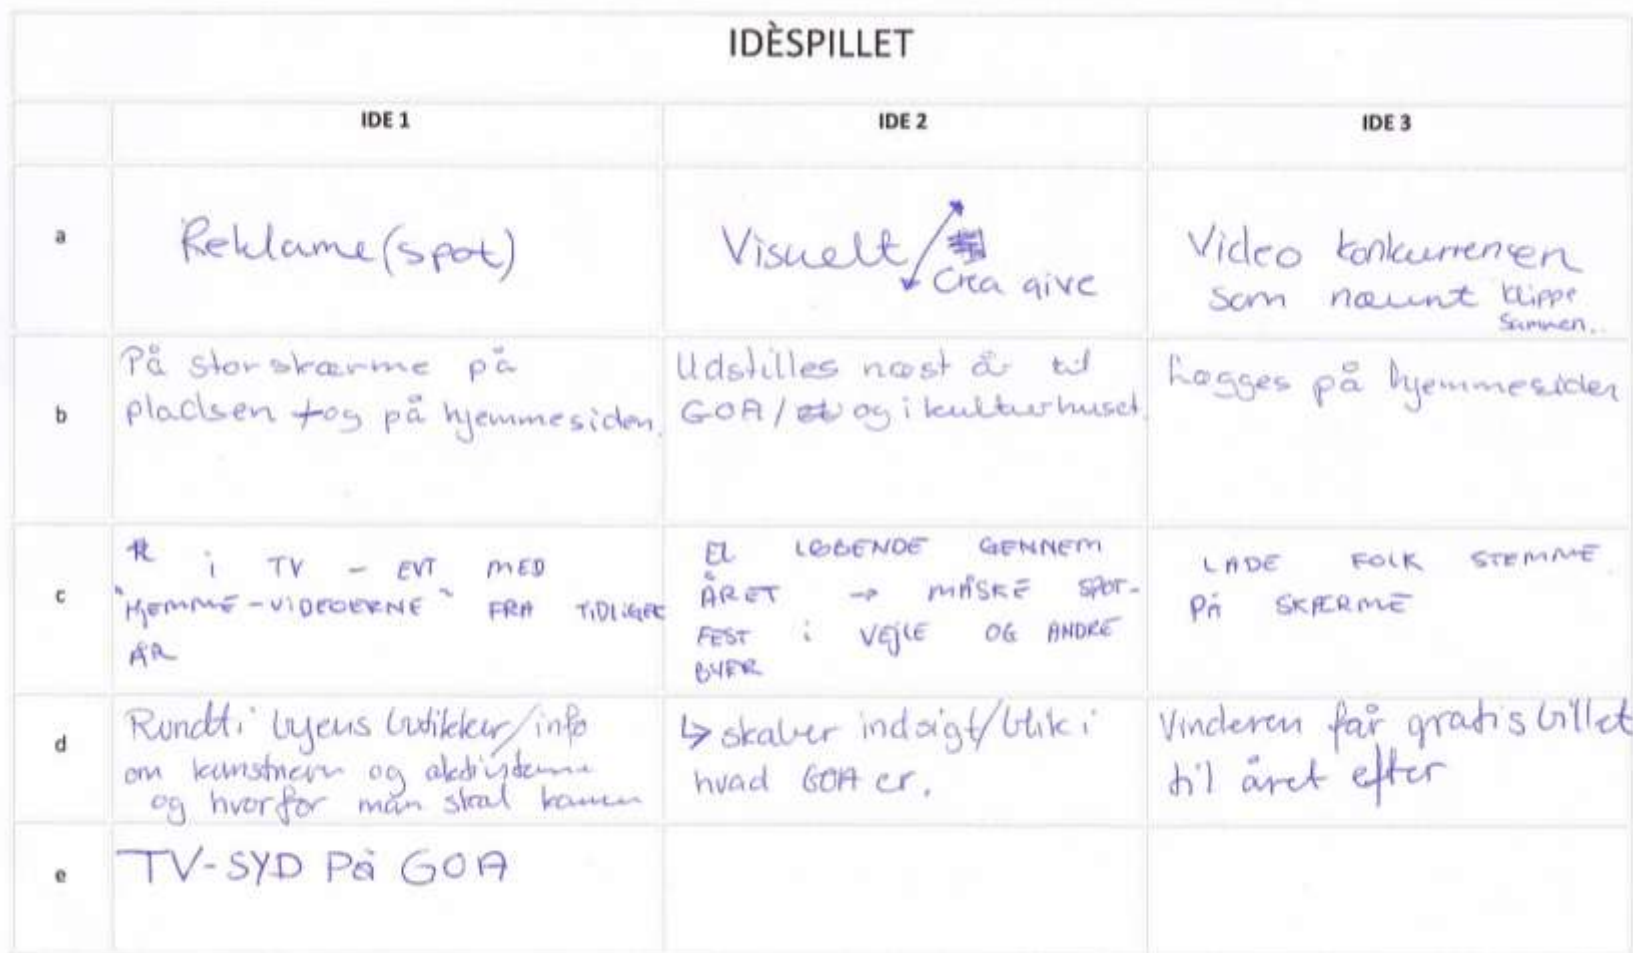 IDÈSPILLET
IDE 1
IDE 2
IDE 3
a
Reklame (spot)
Visuelt /
Crea give
Video konkurrencen
som nævnt klippe
sammen..
b
På storskærme på
pladsen + og på hjemmesiden.
Udstilles næst år til
GOA / og i kulturhuset.
Lægges på hjemmesiden
c
i TV - EVT MED
"HJEMME-VIDEOERNE" FRA TIDLIGERE
ÅR
EL LØBENDE GENNEM
ÅRET → MÅSKE SPOT-
FEST i VEJLE OG ANDRE
BYER
LADE FOLK STEMME
PÅ SKÆRME
d
Rundt i byens butikker/info
om kunstnere og aktiviteterne
og hvorfor man skal komme
↳ skaber indsigt/blik i
hvad GOA er.
Vinderen får gratis billet
til året efter
e
TV-SYD På GOA